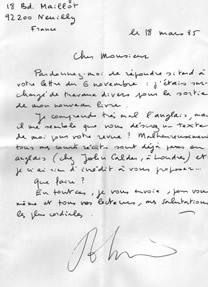 18 Bd. Maillot
92200 Neuilly
France
le 18 mars 85
Cher Monsieur
Pardonnez-moi de répondre si tard à
votre lettre du 6 novembre : j'étais sur-
chargé de travaux divers pour la sortie
de mon nouveau livre.
Je comprends très mal l'anglais, mais
il me semble que vous désirez un texte
de moi pour votre revue ? Malheureusement
tous mes courts récits sont déjà parus en
anglais (chez John Calder, à Londres) et
je n'ai rien d'inédit à vous proposer...
Que faire ?
En tout cas, je vous envoie, pour vous
même et tous vos lecteurs, mes salutations
les plus cordiales.